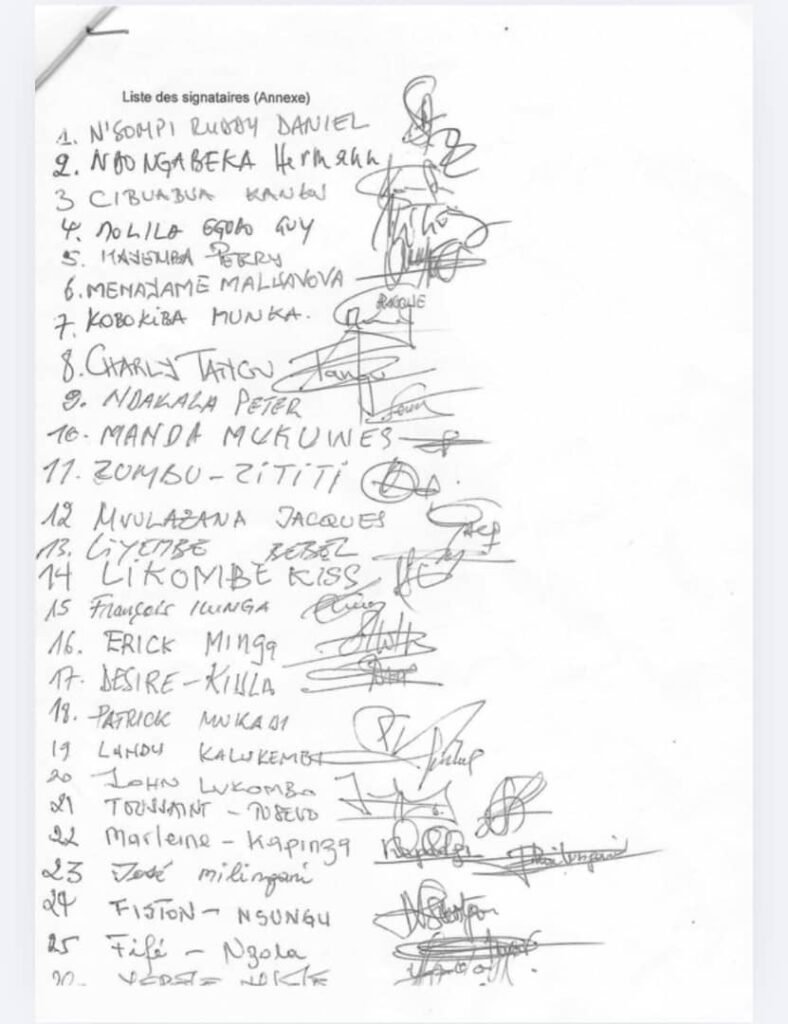 Liste des signataires (Annexe)
1. N'SOMPI RUDDY DANIEL
2. NDONGABEKA Hermann
3 CIBUABUA KANKU
4. MOLILA EGOLO GUY
5. MAYEMBA PERRY
6. MENAJAME MALHANOVA
7. KOBOKIBA MUNKA.
8. CHARLY TANGU Tangu
9. NDAKALA PETER
10. MANDA MUKUWES
11. ZUMBU-ZITITI
12 MVULAZANA JACQUES
13. LIYEMBE BEBEL
14 LIKOMBE KISS
15 François ILUNGA
16. ERICK Minga
17. DESIRE-KIULA
18. PATRICK MUKADI
19 LANDU KALUKEMBI
20 JOHN LUKOMBO
21 TOUSSAINT -
22 Marleine - Kapinga
23 José milingani
24 FISTON - NSUNGU
25 Fifé - Nzola